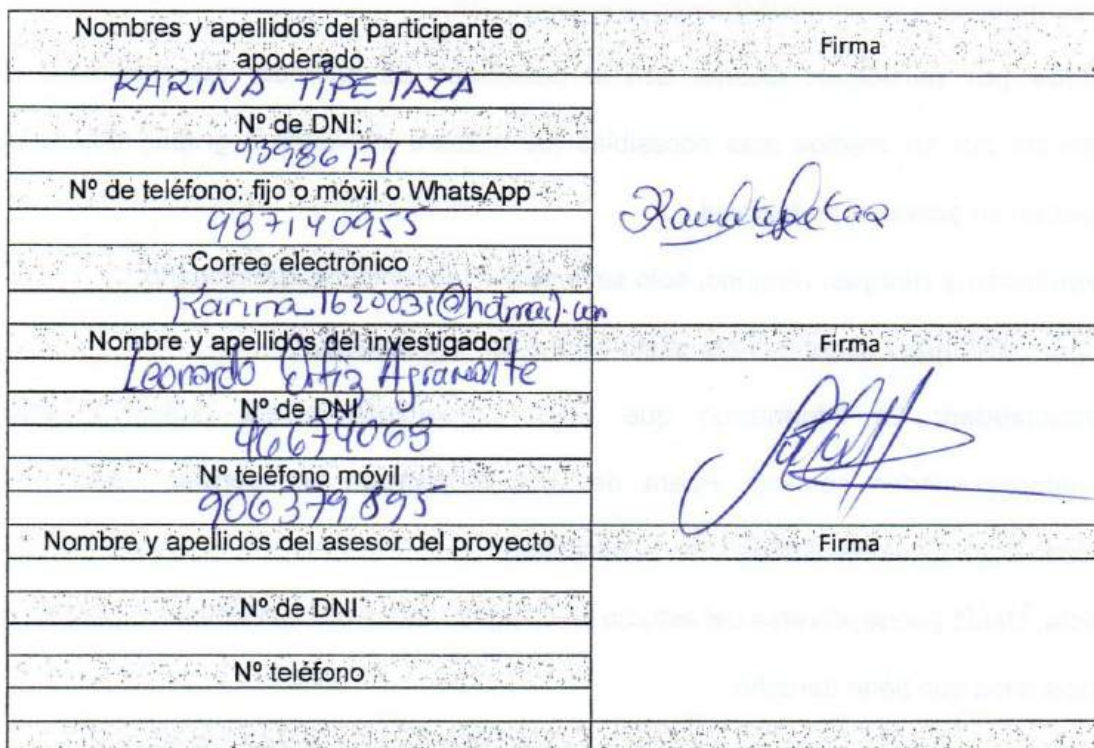 Nombres y apellidos del participante o
apoderado
Firma
KARINA TIPE TAZA
Nº de DNI:
45986171
Nº de teléfono: fijo o móvil o WhatsApp
987140955
Correo electrónico
Karina_1620031@hotmail.com
Nombre y apellidos del investigador
Firma
Leonardo Ortiz Agramonte
Nº de DNI
46674063
Nº teléfono móvil
906379895
Nombre y apellidos del asesor del proyecto
Firma
Nº de DNI
Nº teléfono